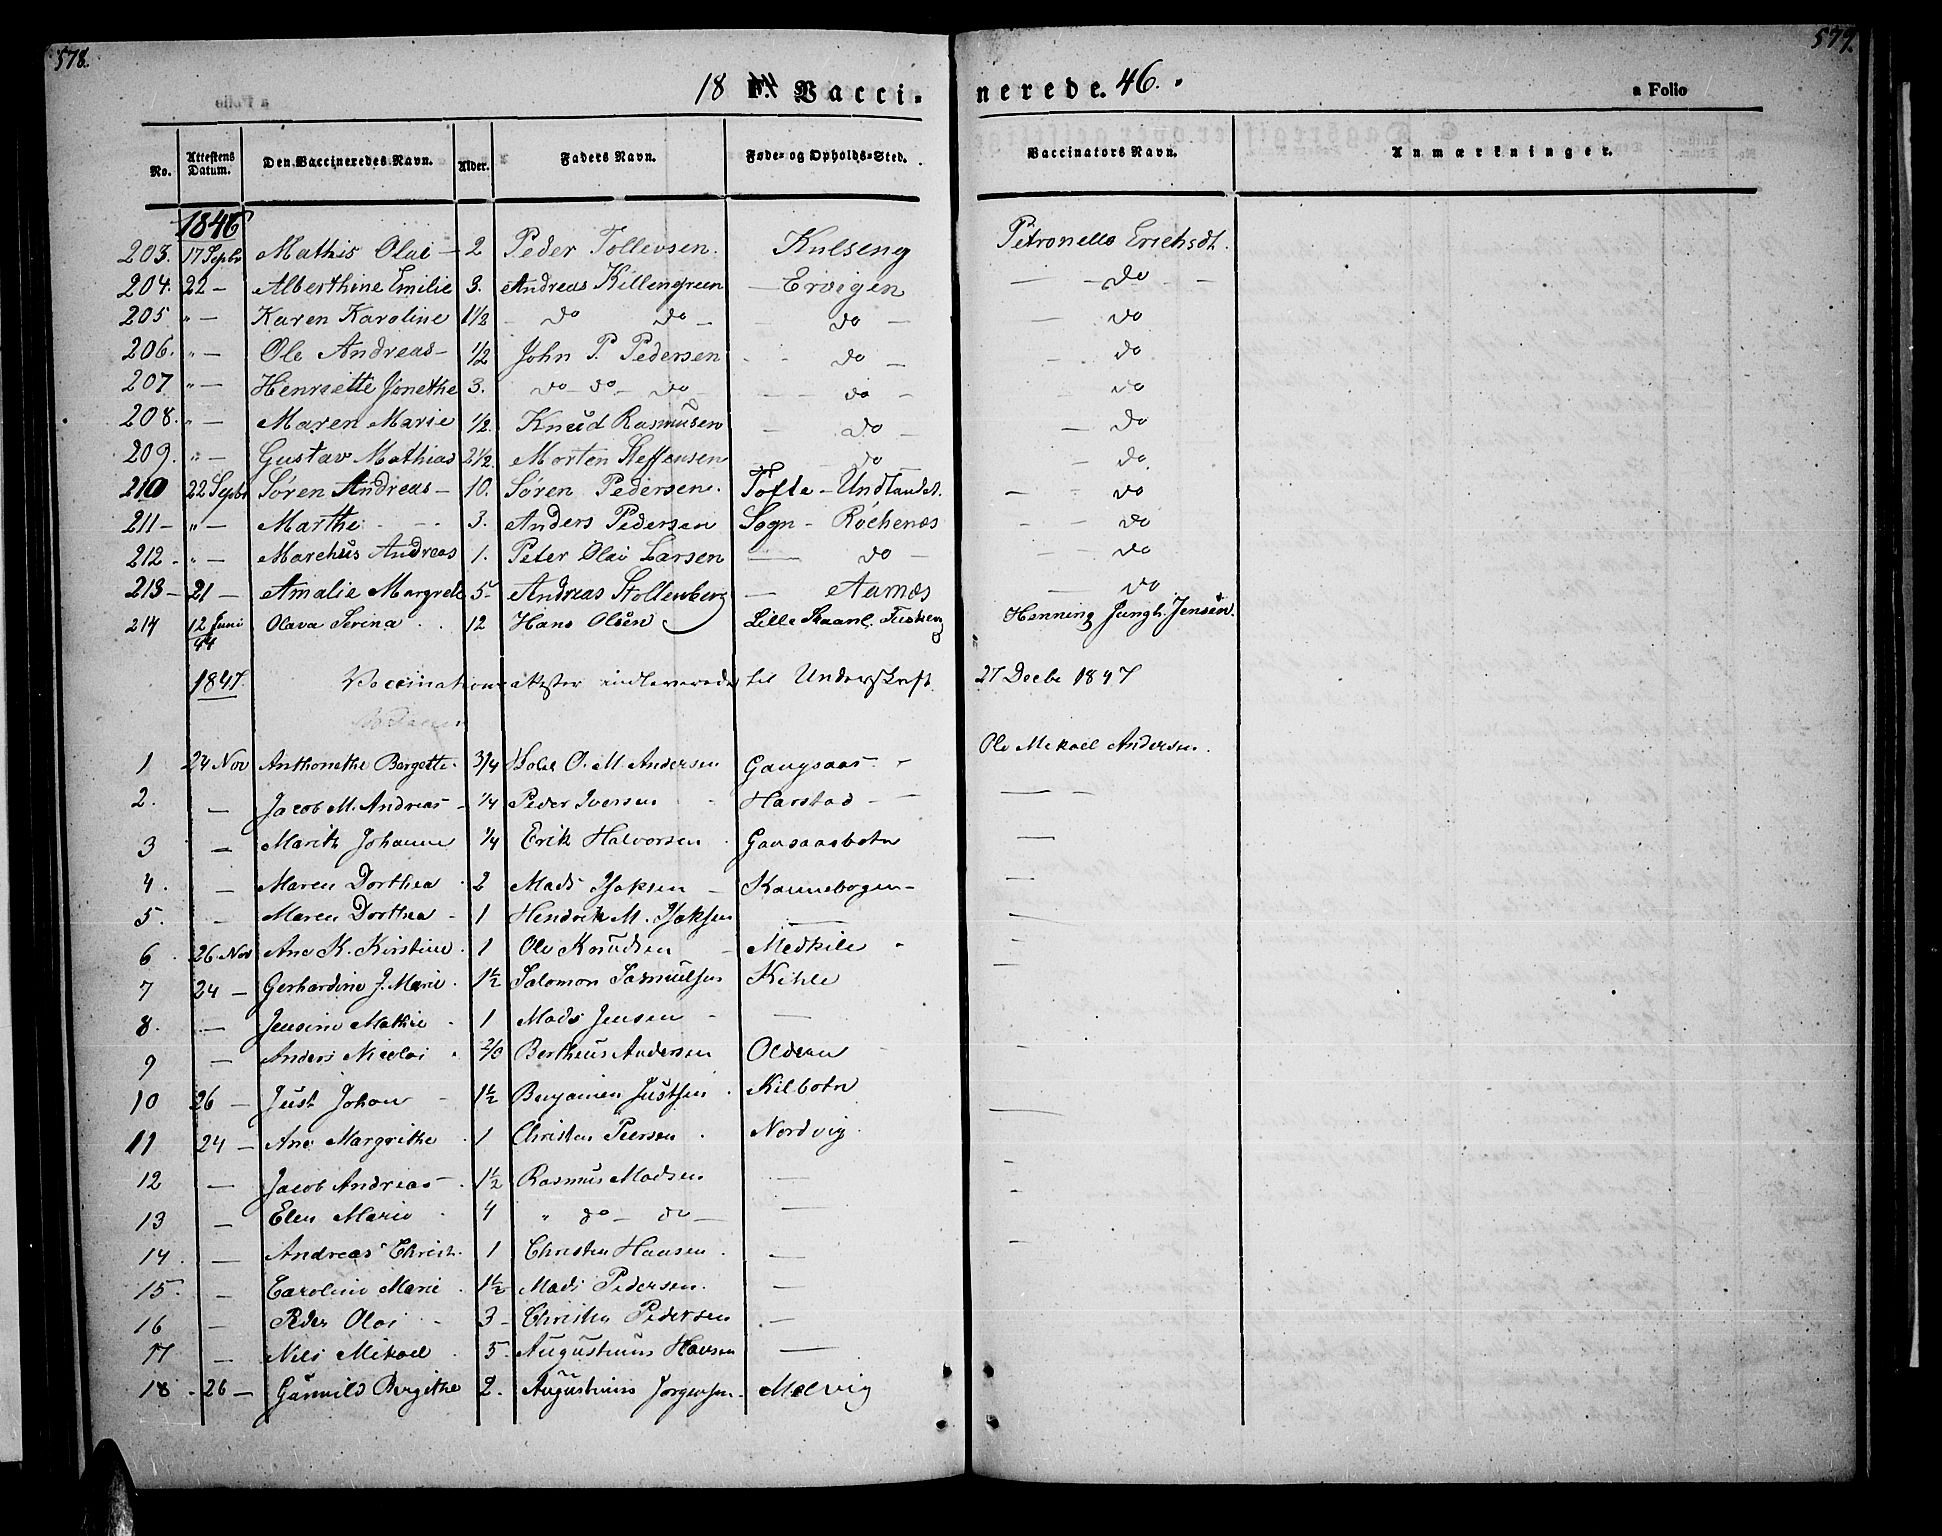 578.
579.
18 F. Vacci- nerede. 46.
a Folio
No. Attestens Datum. Den Vaccineredes Navn. Alder. Faders Navn. Føde- og Opholds-Sted. Vaccinators Navn. Anmærkninger.
1846
203. 17 Sepbr Mathis Olai - 2 Peder Tollevsen. Kulseng Petronelle Erichsdt.
204. 22 - Alberthine Emilie 3. Andreas Killengreen - Ervigen - do -
205 " - Karen Karoline 1 1/2 - do do - - do - - do
206. " - Ole Andreas - 1/2 John P. Pedersen - - do - - do
207 " - Henriette Jonethe 3. do - do - do - - do - - do
208. " - Maren Marie 1/2. Knud Rasmusen - do - - do
209. " - Gustav Mathias 2 1/2. Morten Steffensen do - do.
210 22 Sepbr Søren Andreas - 10. Søren Pedersen. Tofte - Undlandet. - - do
211 - " - Marthe - - 3. Anders Pedersen Sogn - Röchenæs - - do
212 - " - Marchus Andreas 1. Peter Olai Larsen - do - - - do
213 - 21 - Amalie Margrete 5 - Andreas Stoltenberg - Aarnæs - do
214 12 Juni 44 Olava Serina . 12 Hans Olsen Lille Skaanl. Henning Junghl. Jensen.
1847. Vaccinations attester indleverede til Underskrift. 27 Decbr 1847
1 24 Nov Anthonethe Bergette. 3/4 O. M. Andersen Gangsaas - Ole Mikael Andersen.
2. - Jacob M. Andreas - 1/4 Peder Iversen - Harstad - - -
3 - Marith Johanne 1/4 Erik Halvorsen . Gansaasbotn -
4. - Maren Dorthea . 2 Mads Isaksen - Kannebogen - -
5. - Maren Dorthea - 1 Hendrik M. Isaksen - -
6 . 26 Nov Ane K. Kirstine . 1 Ole Knudsen - Medkile - -
7 24 - Gerhardine J. Marie . 1 1/2 Salomon Samuelsen Kihle -
8. - Jensine Mathie . 1 Mads Jensen - -
9 - Anders Nicolai . Bertheus Andersen Olderen -
10 26 - Just Johan - 1 1/2 Benjamin Justsen . Kilbotn -
11 24 - Ane Margrethe . 1 Christen Peersen . Nordvig.
12 - Jacob Andreas - . 1 1/2 Rasmus Madsen - -
13 - Elen Marie . 4 " do - do - - -
14 . - Andreas Christ. 1 Christen Hansen . - -
15 . - Caroline Marie . 1 1/2 Mads Pedersen. -
16 - Peder Olai - 3 - Christen Pedersen -
17 - Nils Mikael . 5. Augustinus Hansen -
18 . 26 - Gunnild Bergithe 2. Augustinus Jørgensen. Melvig